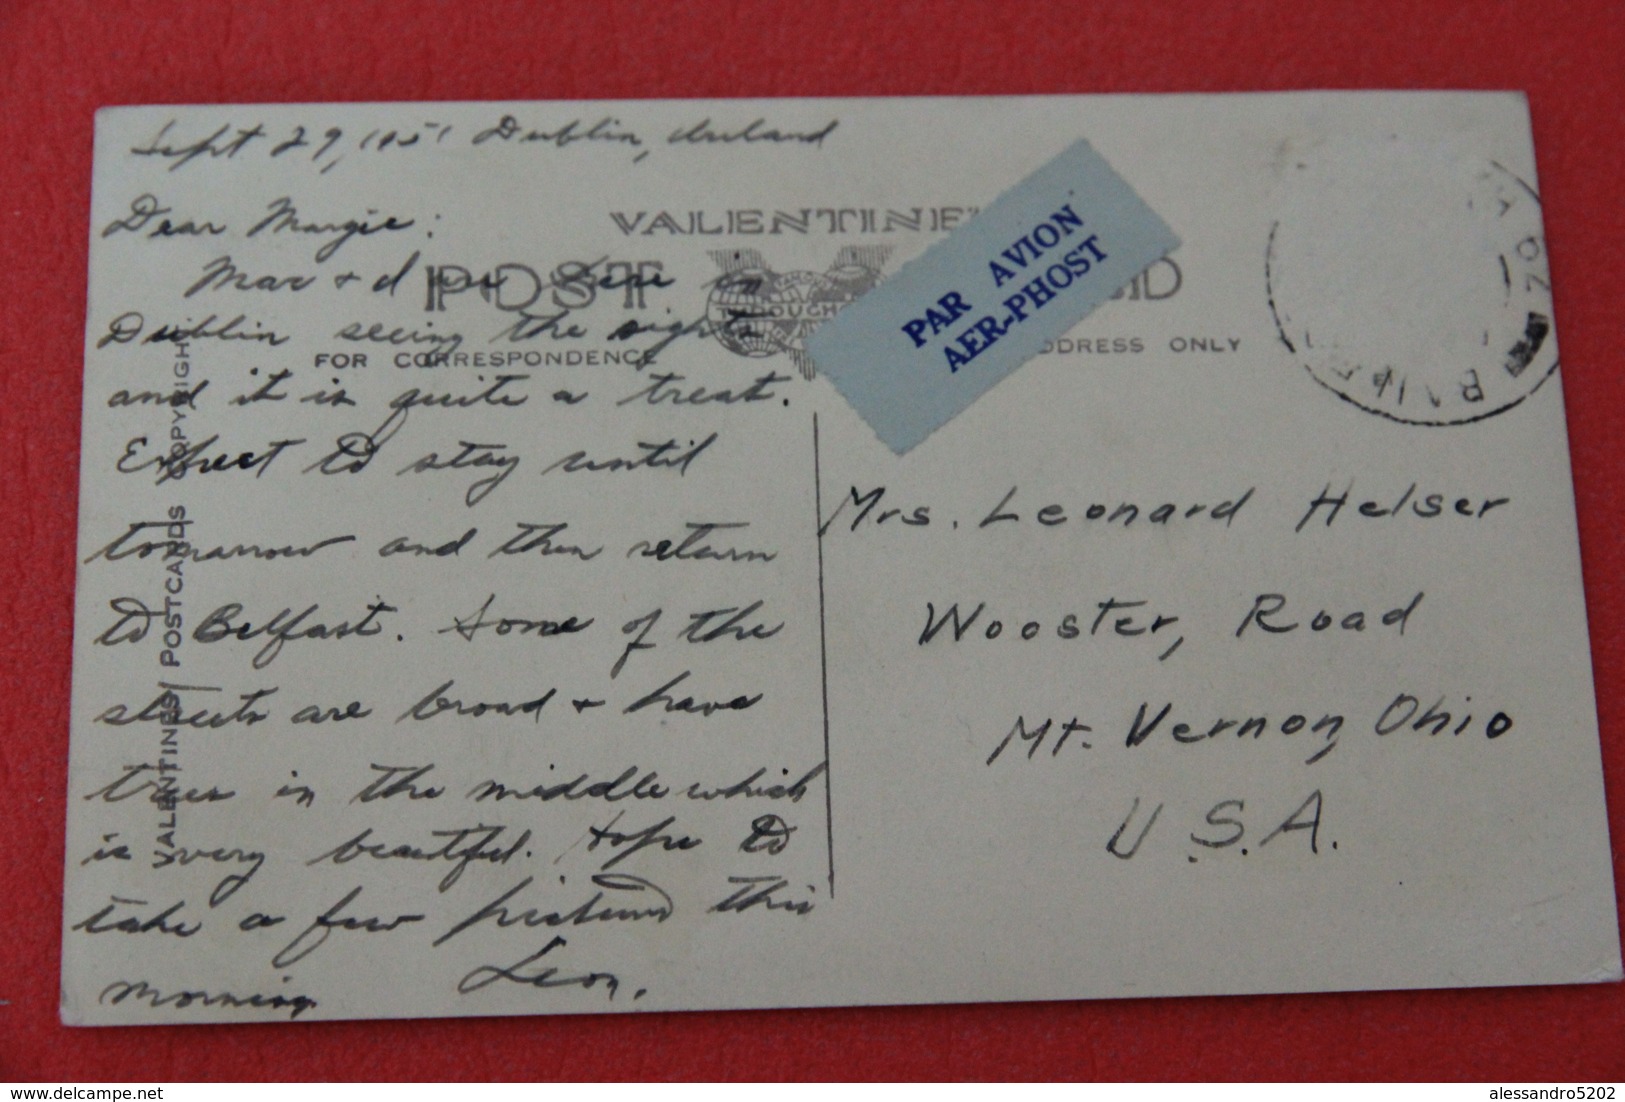 Sept 29, 1951 Dublin, Ireland
Dear Margie:
Mac + I are here in
Dublin seeing the sights
and it is quite a treat.
Expect to stay until
tomorrow and then return
to Belfast. Some of the
streets are broad + have
trees in the middle which
is very beautiful. Hope to
take a few pictures this
morning. Leon.
VALENTINE'S
POST
THROUGHOUT
FOR CORRESPONDENCE
ADDRESS ONLY
VALENTINES POSTCARDS COPYRIGHT
PAR AVION
AER-PHOST
Mrs. Leonard Helser
Wooster, Road
Mt. Vernon, Ohio
U.S.A.
delcampe.net
alessandro5202